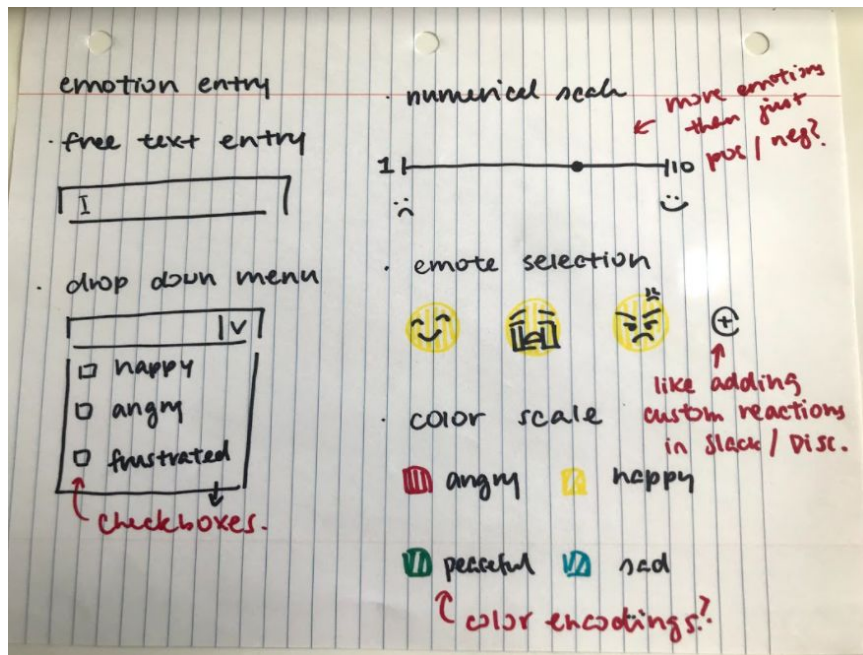 emotion entry
· free text entry
I
· drop down menu
v
happy
angry
frustrated
checkboxes.
· numerical scale
more emotions
then just
pos / neg?
1
10
· emote selection
+
like adding
custom reactions
in Slack / Disc.
· color scale
angry
happy
peaceful
sad
color encodings?